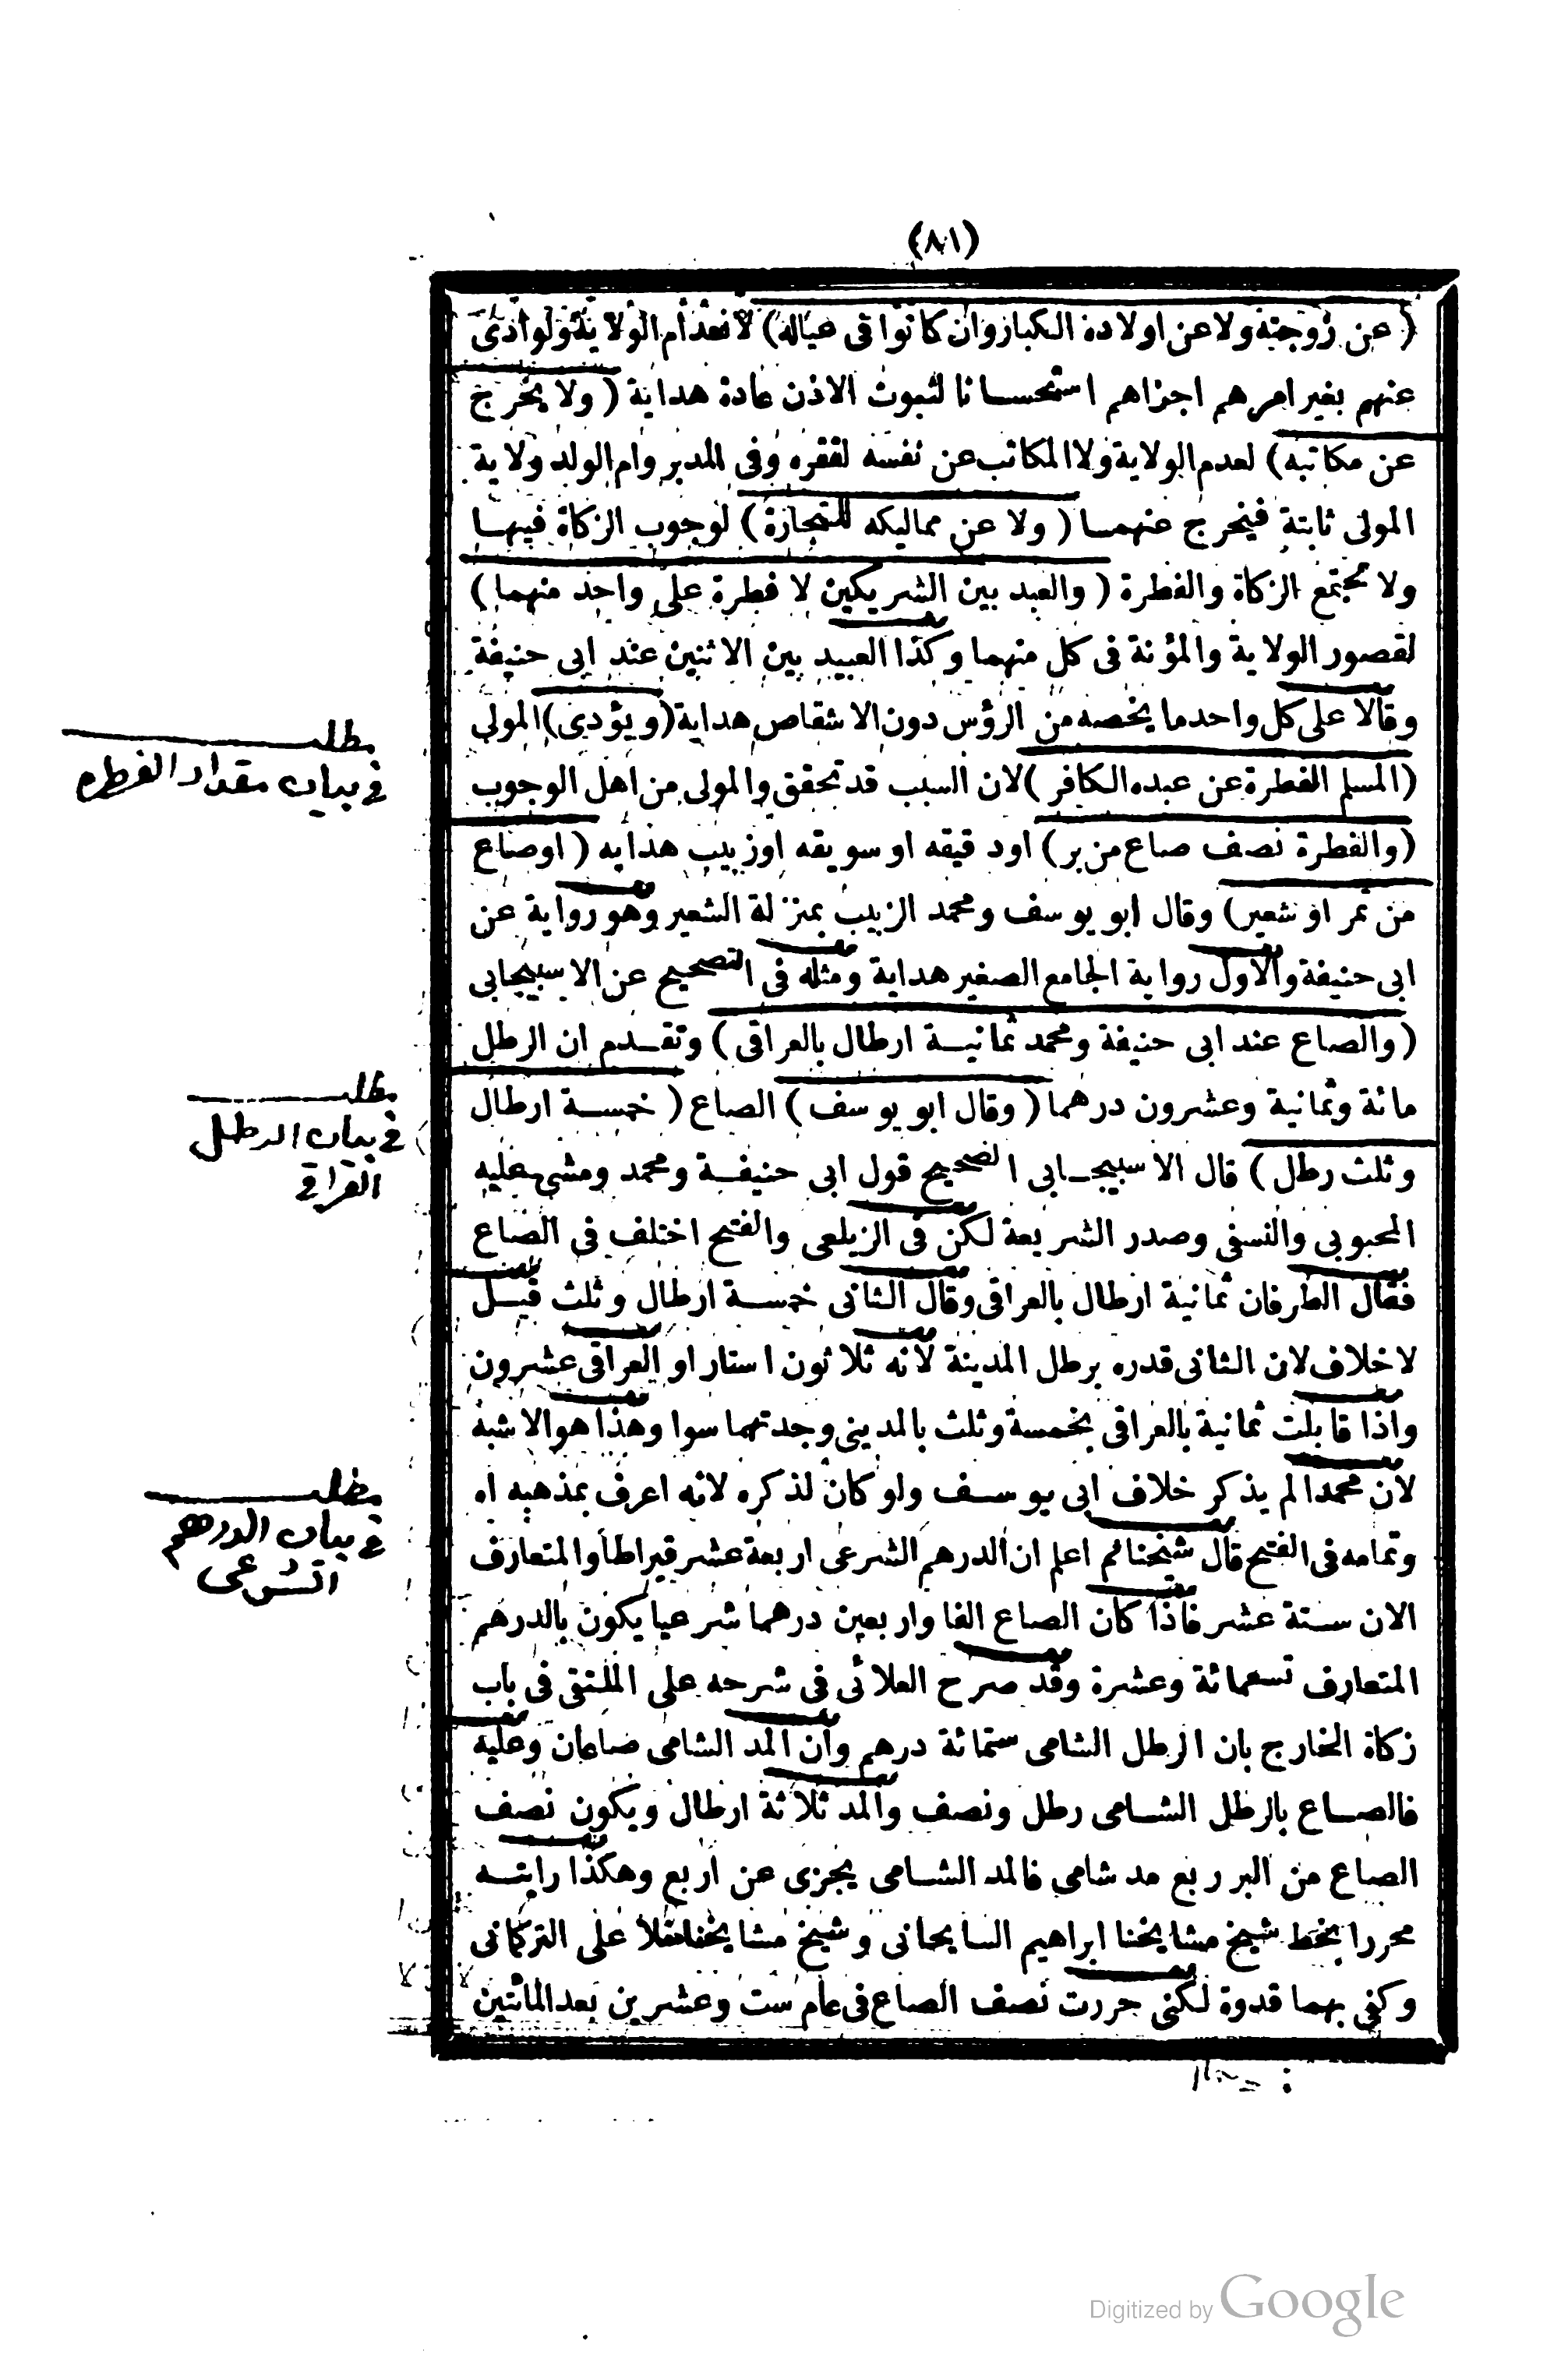 (٨١)
( عن زوجته ولا عن اولاده الكبار وان كانوا فى عياله ) لانعدام الولاية ولو ادى
عنهم بغير امرهم اجزاهم استحسانا لثبوت الاذن عادة هداية ( ولا يخرج
عن مكاتبه ) لعدم الولاية ولا المكاتب عن نفسه لفقره وفى المدبر وام الولد ولاية
المولى ثابتة فيخرج عنهما ( ولا عن مماليكه للتجارة ) لوجوب الزكاة فيها
ولا تجتمع الزكاة والفطرة ( والعبد بين الشريكين لا فطرة على واحد منهما )
لقصور الولاية والمؤنة فى كل منهما وكذا العبيد بين الاثنين عند ابى حنيفة
وقالا على كل واحد ما يخصه من الرؤس دون الاشقاص هداية ( ويؤدى ) المولى
( المسلم الفطرة عن عبده الكافر ) لان السبب قد تحقق والمولى من اهل الوجوب
( والفطرة نصف صاع من بر ) او دقيقه او سويقه او زبيب هدايه ( او صاع
من تمر او شعير ) وقال ابو يوسف ومحمد الزبيب بمنزلة الشعير وهو رواية عن
ابى حنيفة والاول رواية الجامع الصغير هداية ومثله فى التصحيح عن الاسبيجابى
( والصاع عند ابى حنيفة ومحمد ثمانيــة ارطال بالعراقى ) وتقــدم ان الرطل
مائة وثمانية وعشرون درهما ( وقال ابو يوسف ) الصاع ( خمســة ارطال
وثلث رطل ) قال الاسبيجــابى الصحيح قول ابى حنيفــة ومحمد ومشى عليه
المحبوبى والنسفى وصدر الشريعة لكن فى الزيلعى والفتح اختلف فى الصاع
فقال الطرفان ثمانية ارطال بالعراقى وقال الثانى خمســة ارطال وثلث قيــل
لا خلاف لان الثانى قدره برطل المدينة لانه ثلاثون استار او العراقى عشرون
واذا قابلت ثمانية بالعراقى بخمسة وثلث بالمدينى وجدتهما سوا وهذا هو الاشبه
لان محمدا لم يذكر خلاف ابى يوســف ولو كان لذكره لانه اعرف بمذهبه اه
وتمامه فى الفتح قال شيخنا ثم اعلم ان الدرهم الشرعى اربعة عشر قيراطا والمتعارف
الان ستة عشر فاذا كان الصاع الفا واربعين درهما شرعيا يكون بالدرهم
المتعارف تسعمائة وعشرة وقد صرح العلائى فى شرحه على الملتقى فى باب
زكاة الخارج بان الرطل الشامى ستمائة درهم وان المد الشامى صاعان وعليه
فالصــاع بالرطل الشــامى رطل ونصف والمد ثلاثة ارطال ويكون نصف
الصاع من البر ربع مد شامى فالمد الشــامى يجزى عن اربع وهكذا رايتــه
محررا بخط شيخ مشايخنا ابراهيم السايحانى وشيخ مشايخنا منلا على التركمانى
وكفى بهما قدوة لكنى حررت نصف الصاع فى عام ست وعشرين بعد المائتين
مطلب
فى بيان مقدار الفطره
مطلب
فى بيان الرطل
العراقى
مطلب
فى بيان الدرهم
الشرعى
Digitized by Google